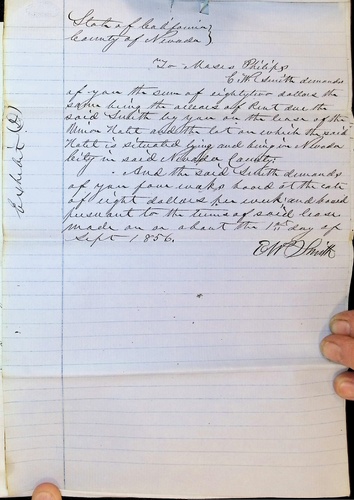 State of California }
County of Nevada }
To Moses Philips
C. W. Smith demands
of you the sum of eighty two dollars the
same being the arrears of Rent due the
said Smith by you on the lease of the
Union Hotel and the lot on which the said
Hotel is situated lying and being in Nevada
City in said Nevada County.
And the said Smith demands
of you four weeks board at the rate
of eight dollars per week and based
pursuant to the terms of said lease
made on or about the 1st day of
Sept 1856.
C W Smith
Exhibit (D)